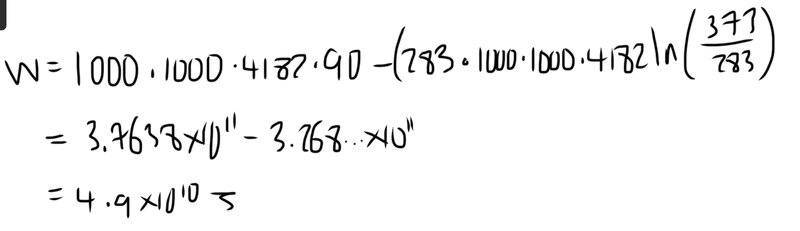 W = 1000 · 1000 · 4182 · 90 - (283 · 1000 · 1000 · 4182 ln(373/283)
= 3.7638×10¹¹ - 3.268...×10¹¹
= 4.9×10¹⁰ J